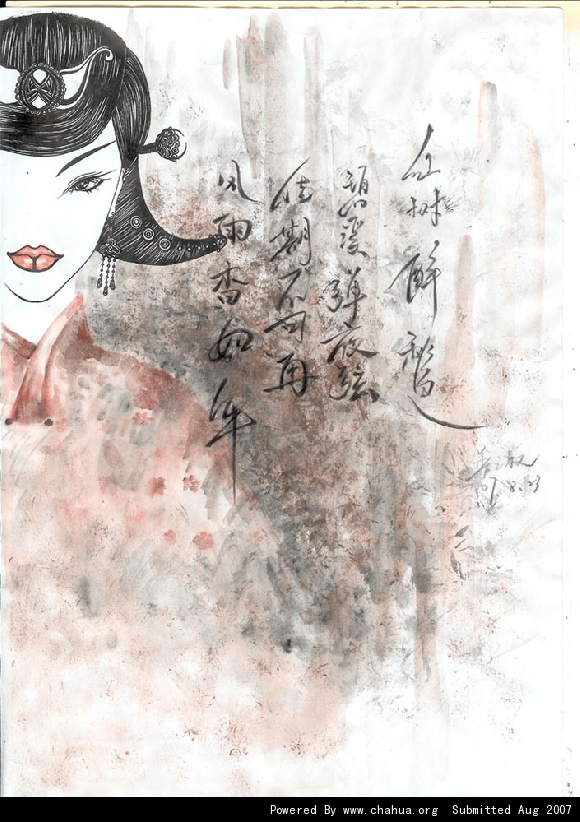 红树醉秋色
碧溪弹夜弦
佳期不可再
风雨杳如年
07.8.23
Powered By www.chahua.org Submitted Aug 2007